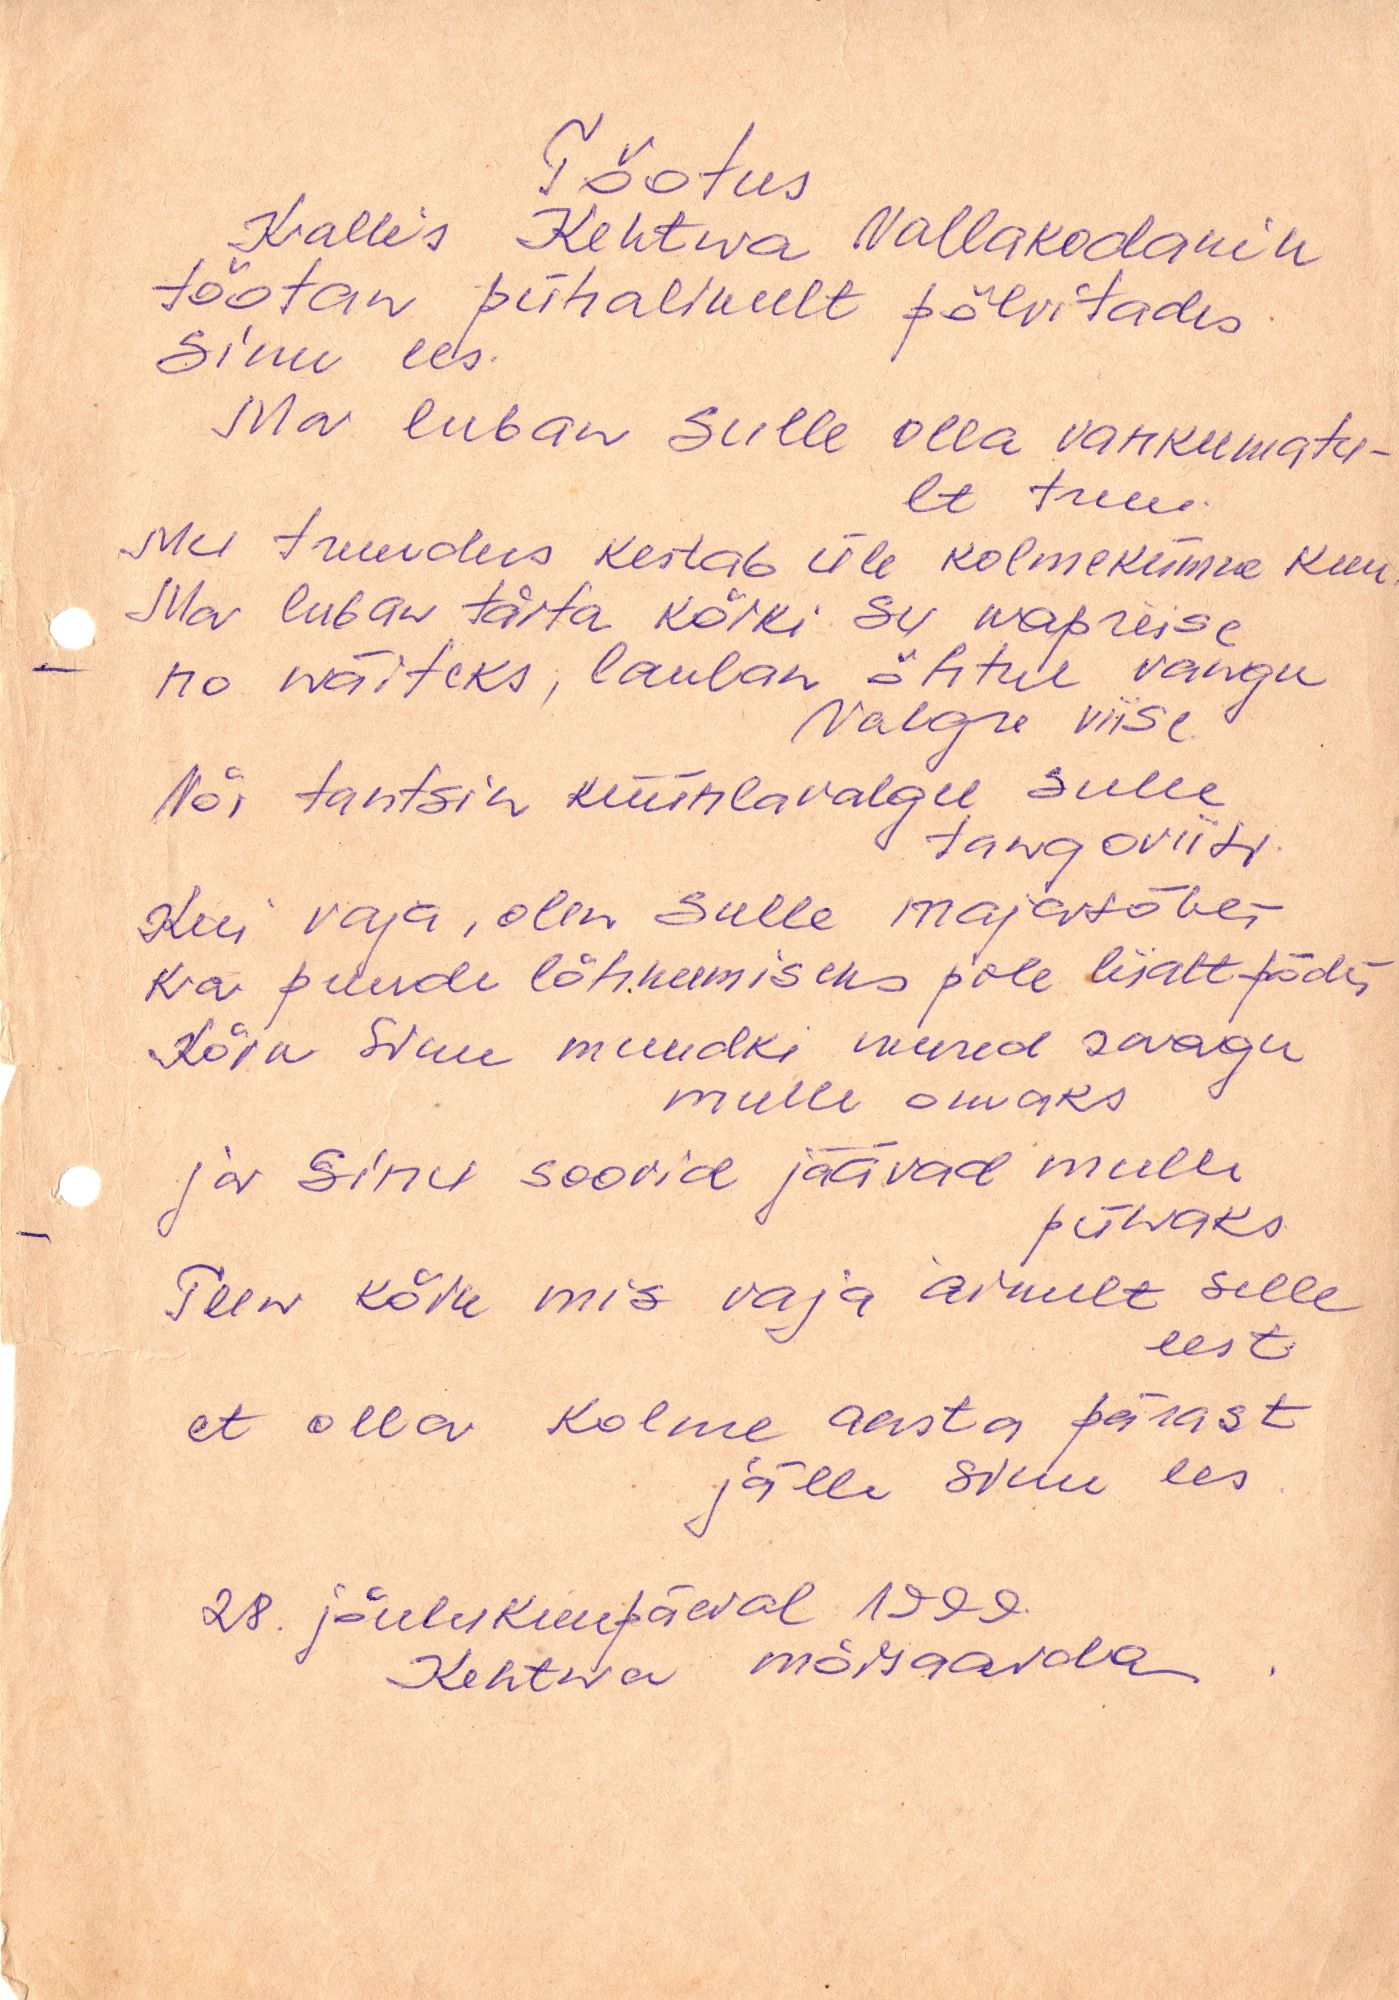 Tõotus
Kallis Kehtwa Vallakodanik
tõotan pühalikult põlvitades
Sinu ees.
Ma luban Sulle olla vankumatu-
lt truu.
Mu truudus kestab üle kolmekümne kuu
Ma luban täita kõiki Su kapriise
no wäiteks, laulan õhtul vangu
Valgre viise
Või tantsin küünlavalgul sulle
tangoviisi.
Kui vaja, olen Sulle majasõber
ka puude lõhkumiseks pole liialt põder
Kõik Sinu muudki mured saagu
mulle omaks
ja Sinu soovid jäävad mulle
pühaks
Teen kõik mis vaja ainult selle
eest
et olla kolme aasta pärast
jälle Sinu ees
28. jõulukuupäeval 1999.
Kehtwa mõisaaida.